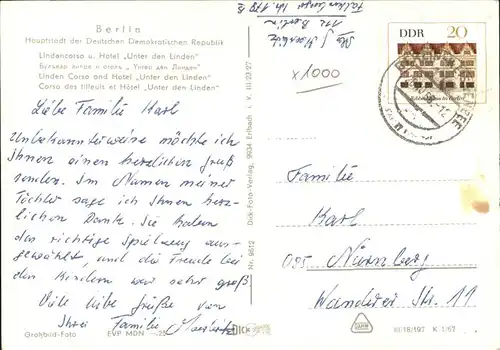 Berlin
Hauptstadt der Deutschen Demokratischen Republik
Lindencorso u. Hotel „Unter den Linden"
Бульвар линден и отель „Унтер ден Линден"
Linden Corso and Hotel „Unter den Linden"
Corso des tilleuls et Hôtel „Unter den Linden"
Liebe Familie Karl
Unbekannterweise möchte ich
Ihnen einen herzlichen Gruß
senden. Im Namen meiner
Töchter sage ich Ihnen herz-
lichen Dank. Sie haben
das richtige Spielzeug aus-
gewählt, und die Freude bei
den Kindern war sehr groß
Viele liebe Grüße von
Ihrer Familie
Großbild-Foto EVP MDN -,25
Nr. 9612 Dick-Foto-Verlag, 9934 Erlbach i. V. III/23/27
112 Berlin
x1000
DDR 20
Familie
Karl
Nürnberg
Wandrer Str. 11
III/18/197 K 1/67